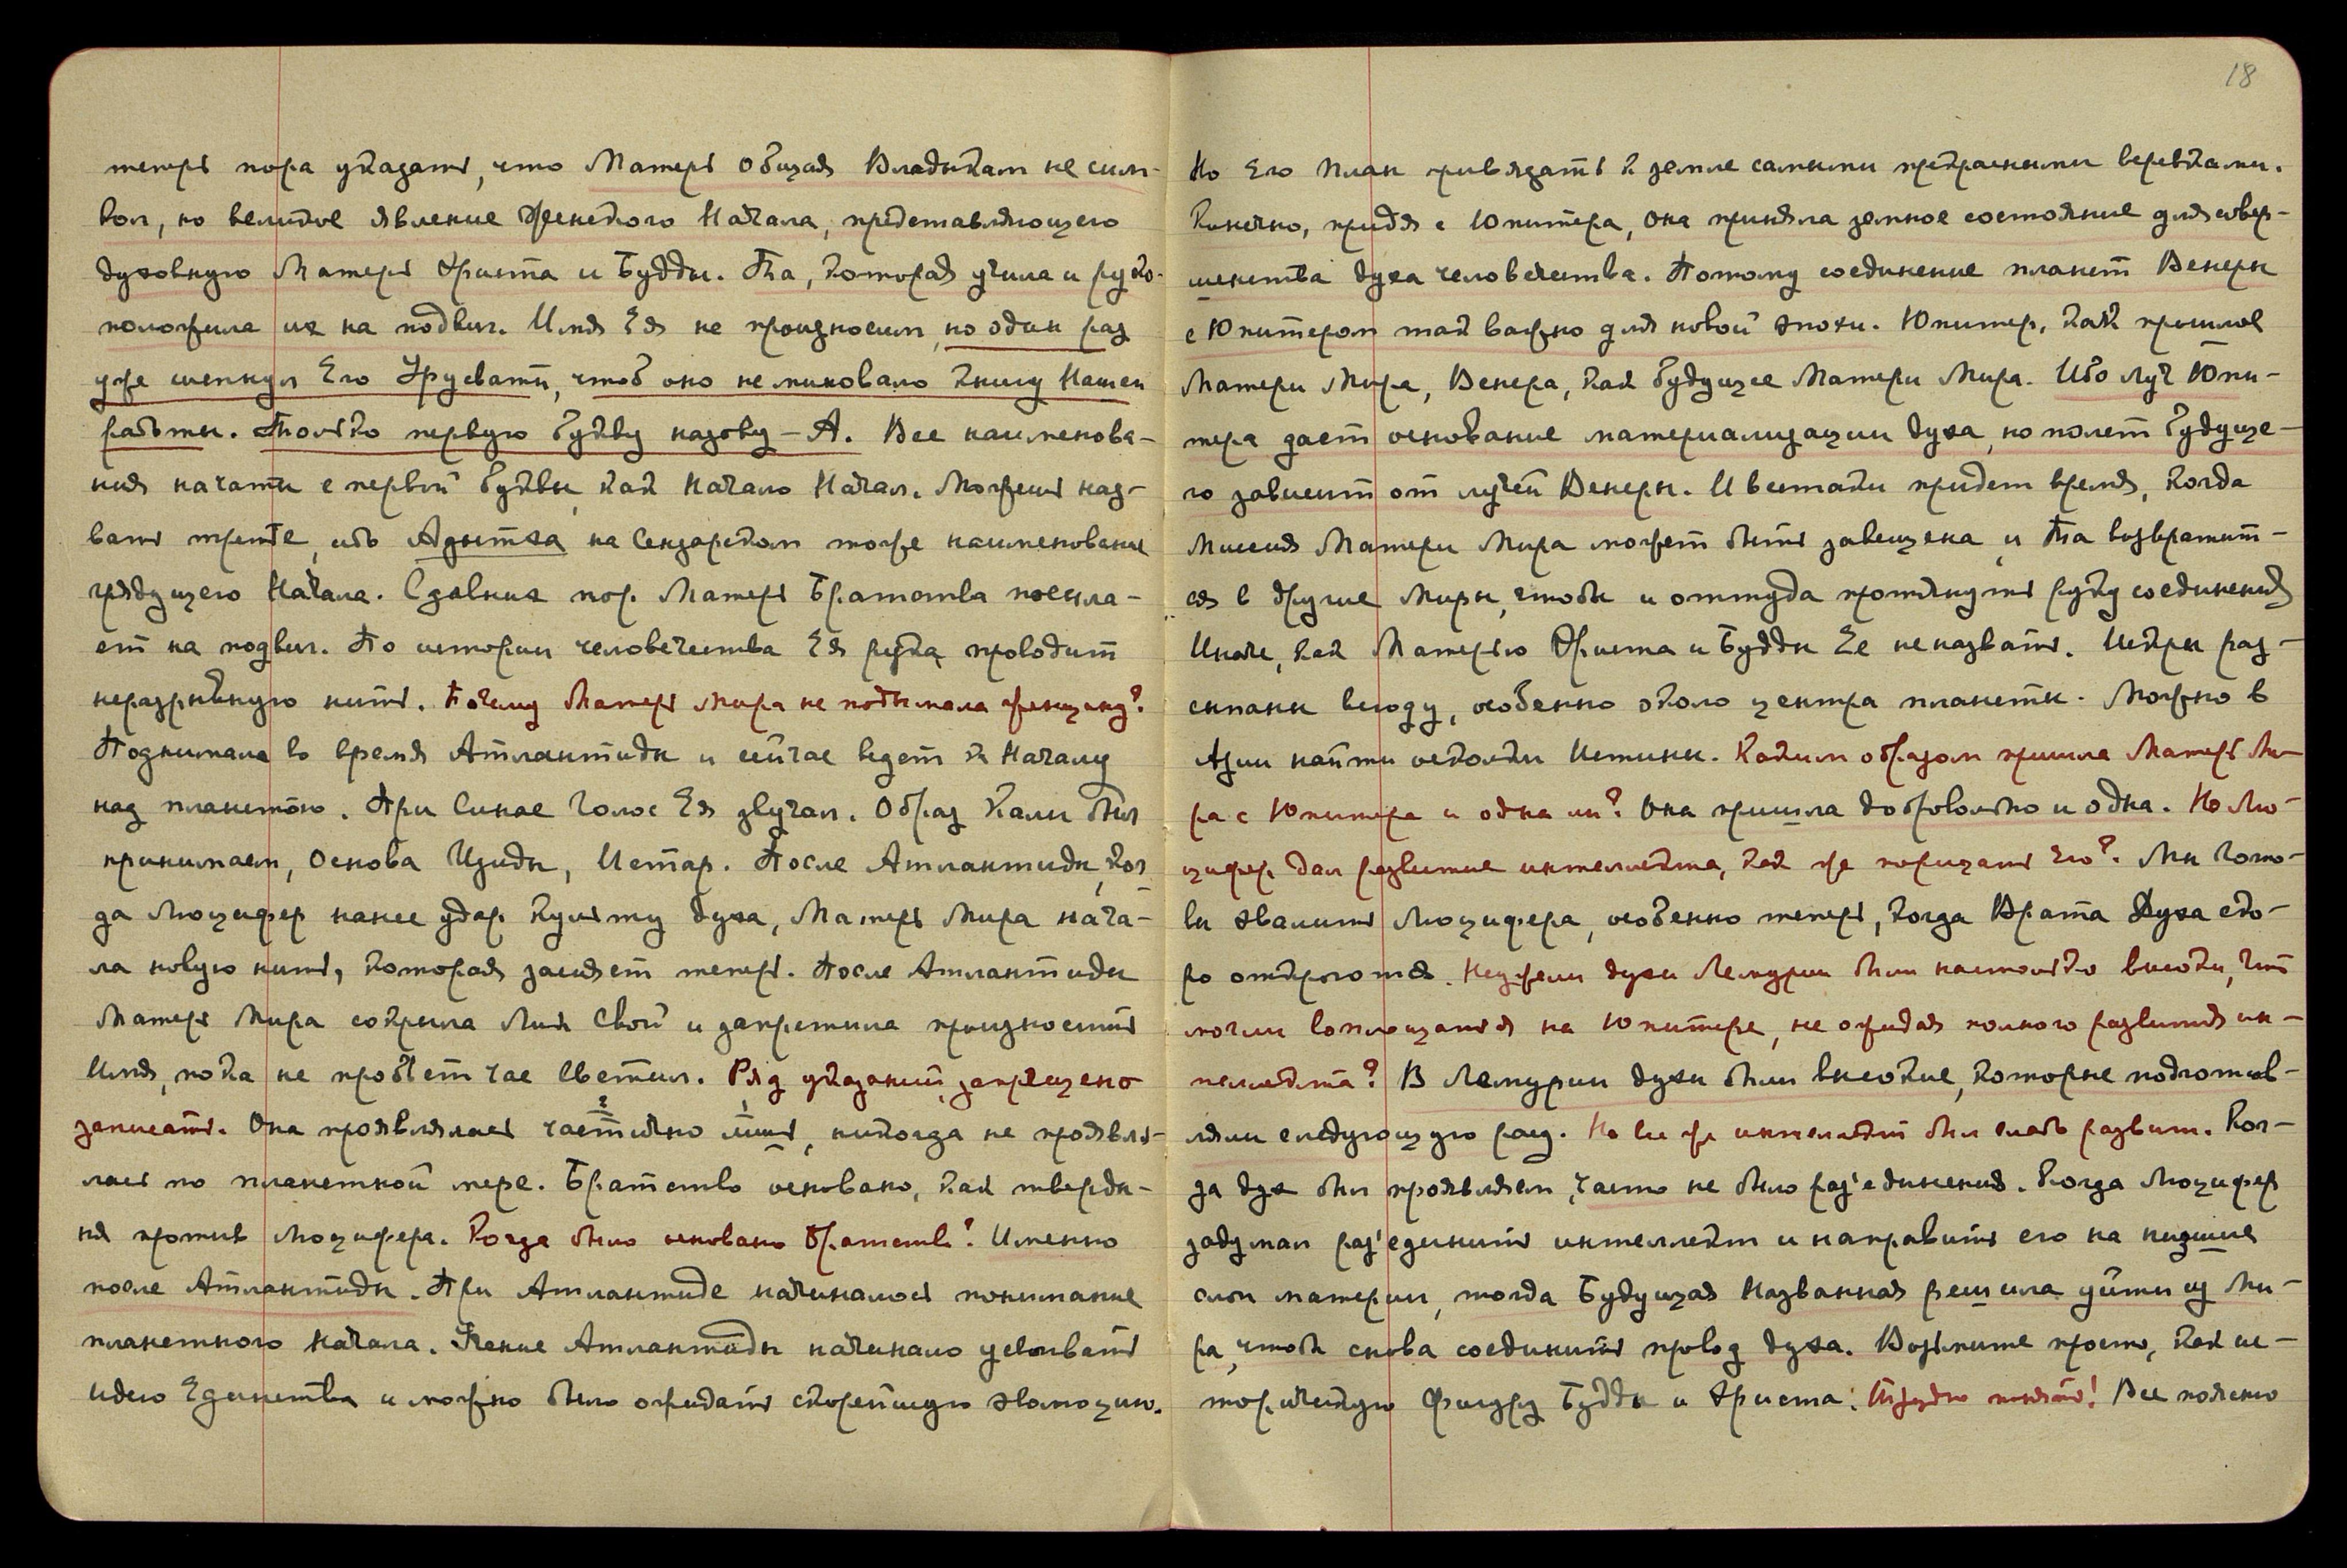 теперь пора указать, что Матерь общая Владыкам не сим-
вол, но великое явление Женского Начала, представляющего
духовную Матерь Христа и Будды. Та, которая учила и руко-
положила их на подвиг. Имя Ея не произносим, но один раз
уже шепнул Его Урусвати, чтоб оно не миновало книгу Нашей
работы. Только первую букву назову – А. Все наименова-
ния начаты с первой буквы, как Начало Начал. Можешь наз-
вать ибо на Сензарском тоже наименование
грядущего Начала. С давних пор Матерь Братства посыла-
ет на подвиг. По истории человечества Ея рука проводит
неразрывную нить. Почему Матерь Мира не подымала женщину?
Поднимала во время Атлантиды и сейчас ведет к Началу
над планетою. При Синае Голос Ея звучал. Образ Кали был
принимаем, Основа Изиды, Истар. После Атлантиды, ког
да Люцифер нанес удар культу духа, Матерь Мира нача-
ла новую нить, которая засияет теперь. После Атлантиды
Матерь Мира сокрыла Лик Свой и запретила произносить
Имя, пока не пробьет час Светил. Ряд указаний, запрещено
записать. Она проявлялась частично лишь, никогда не проявля-
лась по планетной мере. Братство основано, как тверды-
ня против Люцифера. Когда было основано Братство? Именно
после Атлантиды. При Атлантиде начиналось понимание
планетного Начала. Течение Атлантиды начинало усваивать
идею Единства и можно было ожидать скорейшую эволюцию.
18
Но Его План привязать к земле самыми прекрасными веревками.
Конечно, придя с Юпитера, Она приняла земное состояние для совер-
шенства духа человечества. Потому соединение планет Венеры
с Юпитером так важно для новой эпохи. Юпитер, как прошлое
Матери Мира, Венера, как будущее Матери Мира. Ибо луч Юпи-
тера дает основание материализации духа, но полет будуще-
го зависит от лучей Венеры. И все-таки придет время, когда
Миссия Матери Мира может быть завещена, и Та возвратит-
ся в другие Миры, чтобы и оттуда протянуть руку соединения
Иначе, как Матерью Христа и Будды Ее не назвать. Искры раз-
сыпаны всюду, особенно около центра планеты. Можно в
Азии найти осколки Истины. Каким образом пришла Матерь Ми-
ра с Юпитера и одна ли? Она пришла добровольно и одна. Но Лю-
цифер дал развитие интеллекта, как же порицать Его? Мы гото-
вы хвалить Люцифера, особенно теперь, когда Врата Духа ско-
ро откроются. Неужели духи Лемурии были настолько высоки, что
могли воплощаться на Юпитере, не ожидая полного развития ин-
теллекта? В Лемурии духи были высокие, которые подготов-
ляли следующую расу. Но все же интеллект был слабо развит. Ког-
да дух был проявляем, часто не было раз'единения. Когда Люцифер
задумал раз'единить интеллект и направить его на низшие
слои материи, тогда Будущая Названная решила уйти из Ми-
ра, чтобы снова соединить провод духа. Возьмите просто, как ис-
торическую фигуру Будды и Христа. Трудно понять! Все поясню